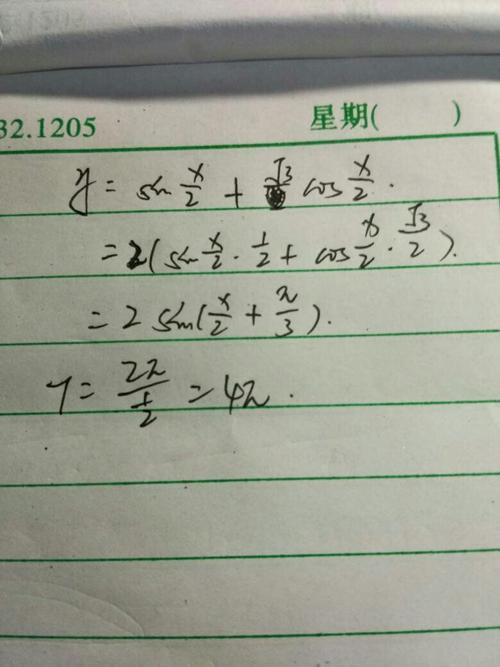 32.1205 星期( )
y = sin x/2 + √3 cos x/2.
= 2(sin x/2 · 1/2 + cos x/2 · √3/2).
= 2 sin(x/2 + π/3).
T = 2π/(1/2) = 4π.